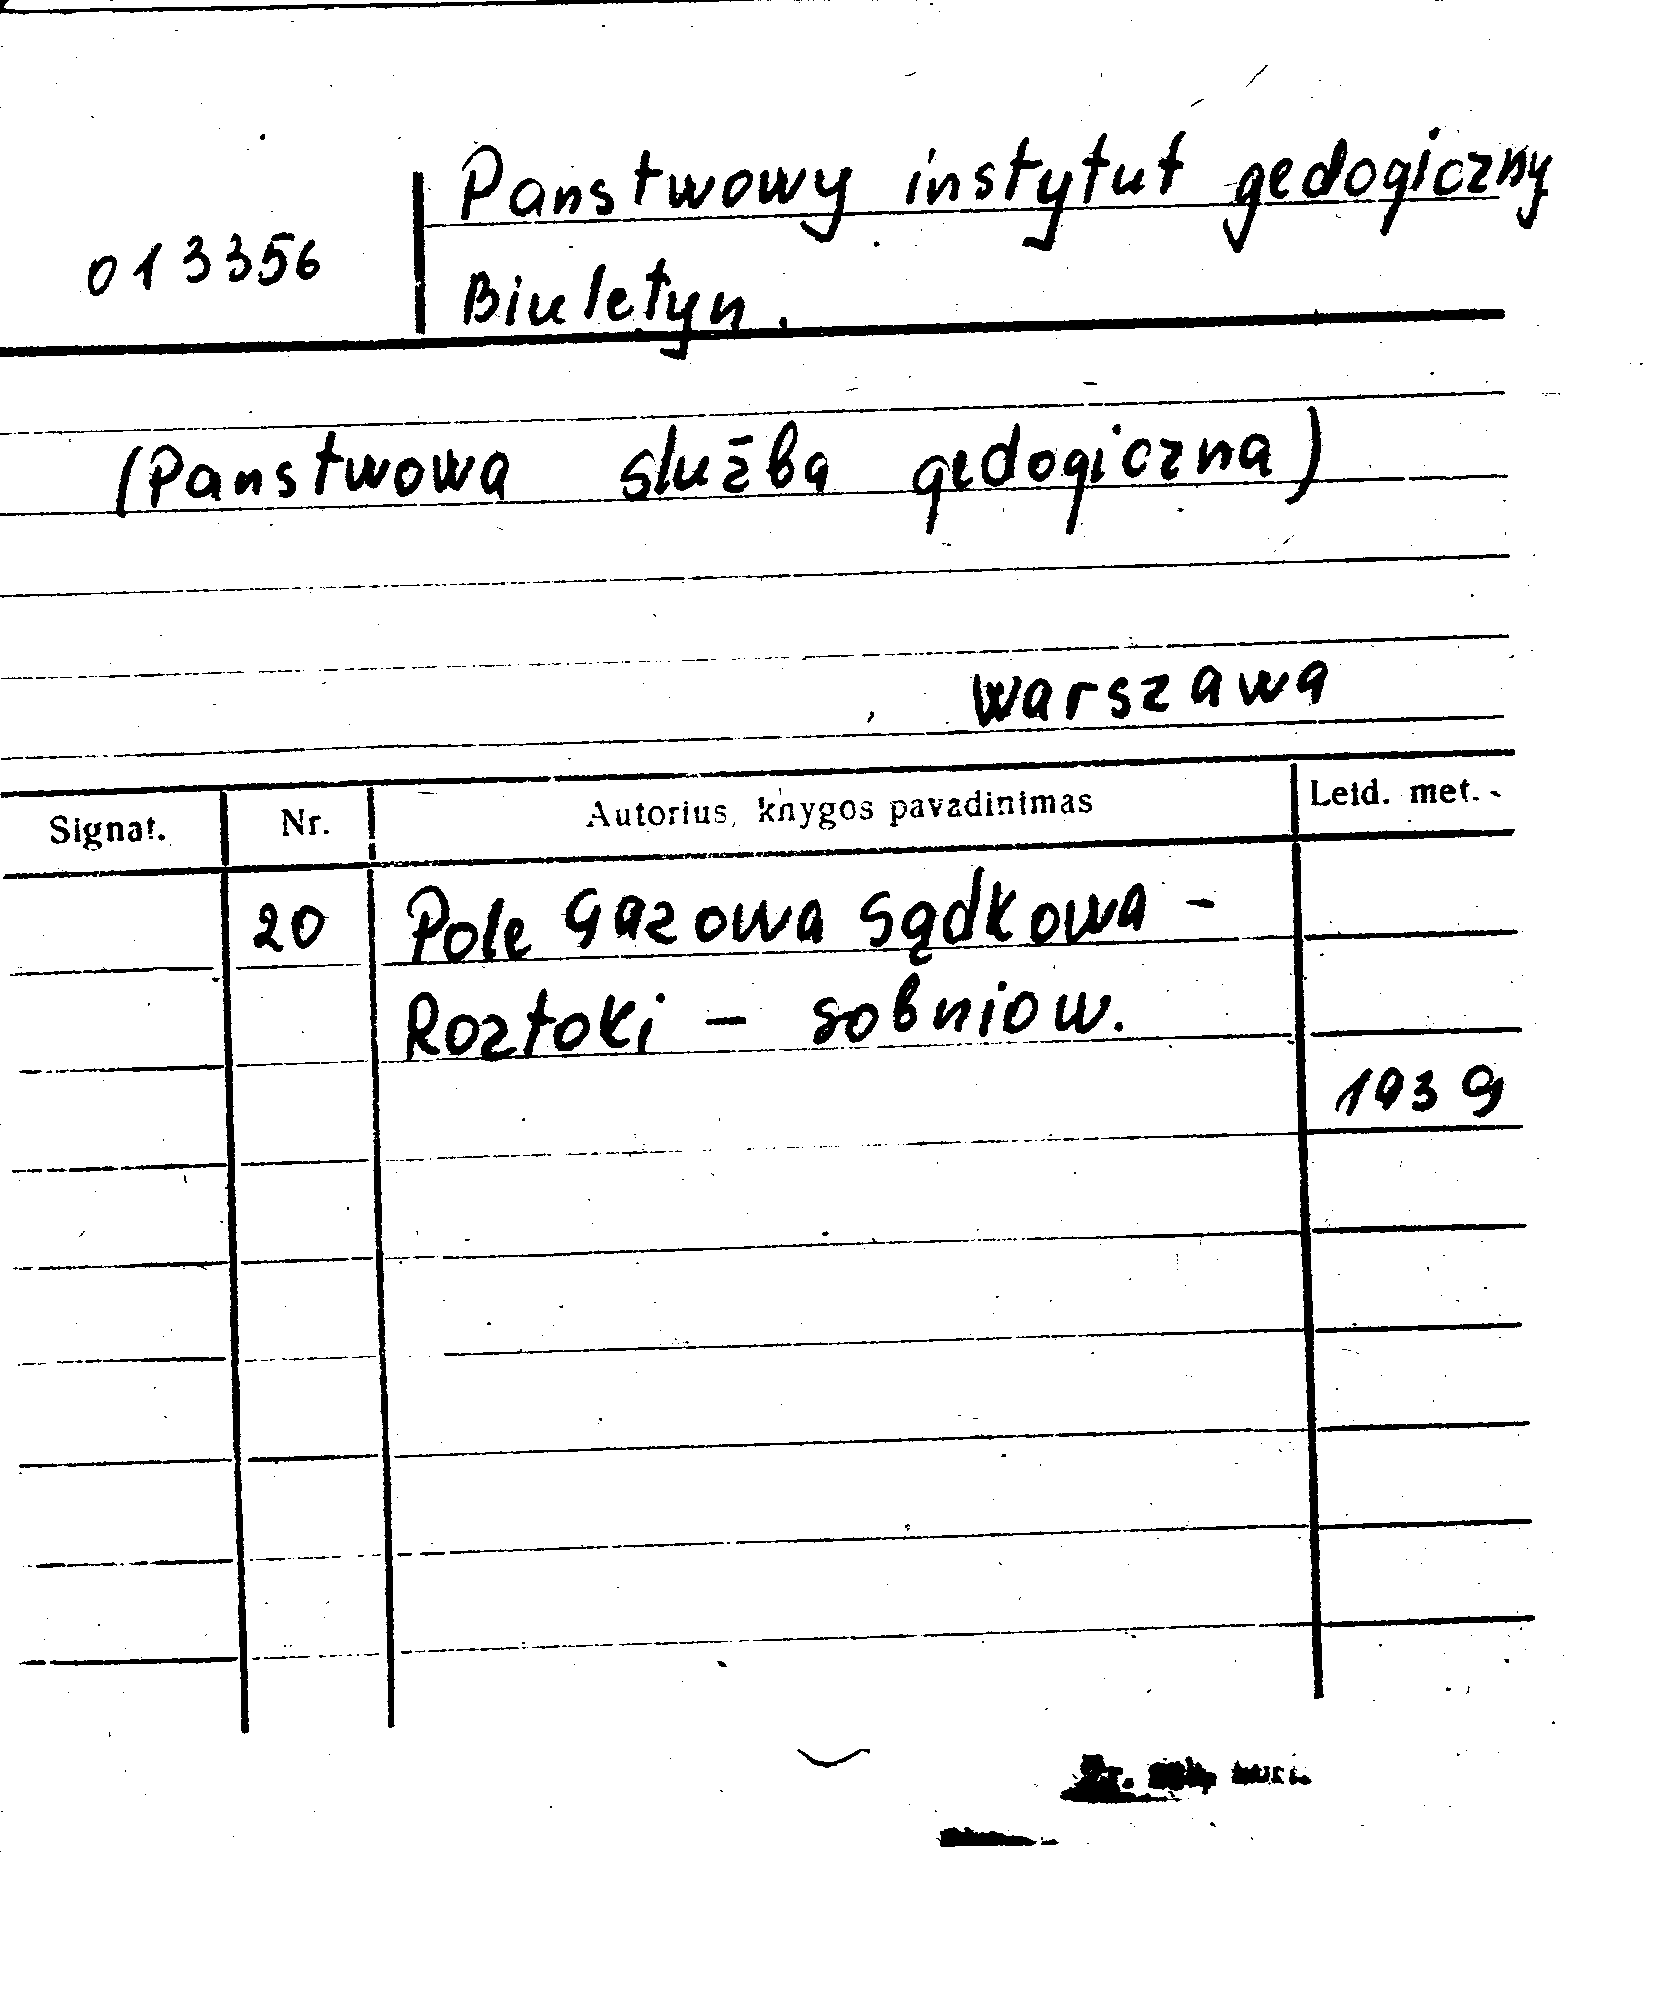 Panstwowy instytut geologiczny
013356
Biuletyn.
(Panstwowa služba geologiczna)
Warszawa
Signat. Nr. Autorius, knygos pavadinimas Leid. met.
20 Pole Gazowa Sądkowa -
Roztoki - sobniow.
1939